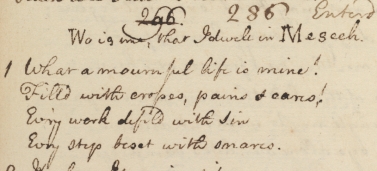 296. 286 Enterd
Wo is me, that I dwell in Mesech.
1 What a mournful life is mine!
Fill'd with crosses, pains & cares!
Evry work defil'd with sin
Evry step beset with snares.